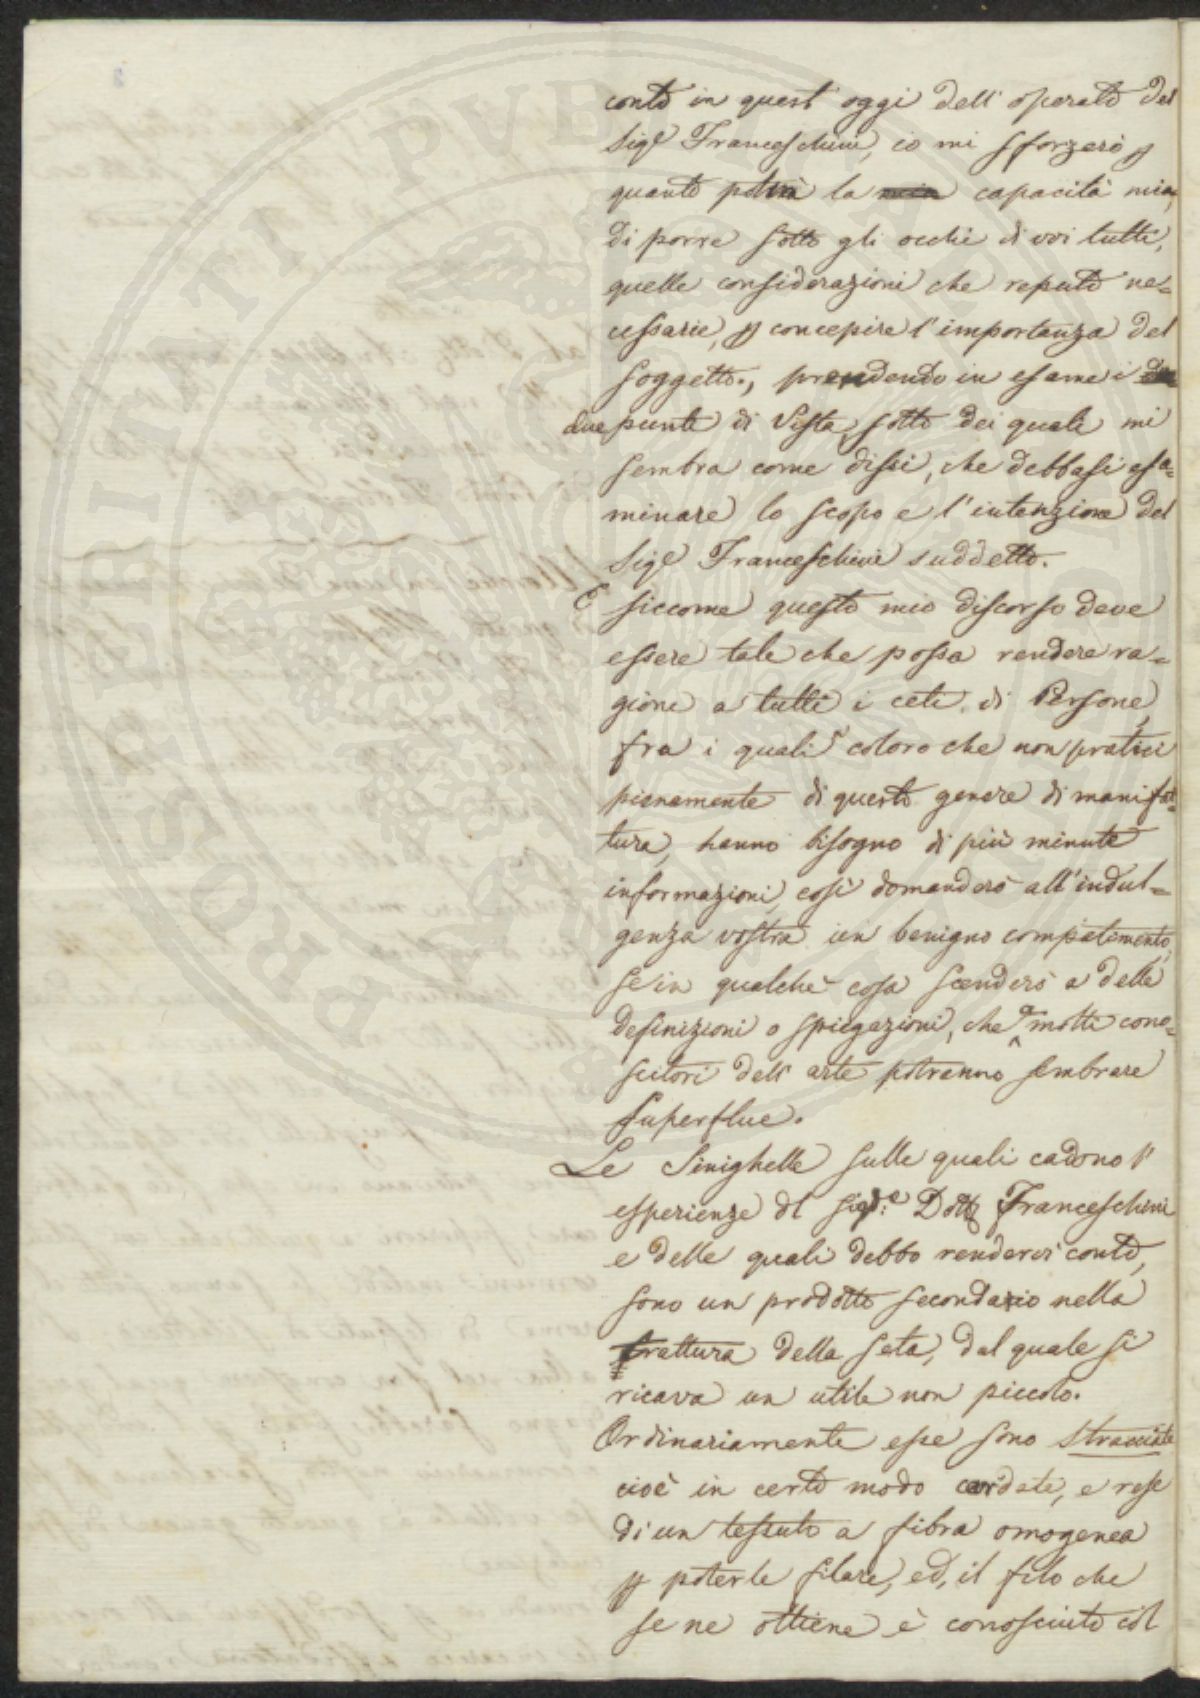 conto in quest' oggi dell' operato del
Sigr Franceschini, io mi sforzerò p
quanto potrà la mia capacità mia,
di porre sotto gli occhi di voi tutti,
quelle considerazioni che reputo ne=
cessarie, p concepire l'importanza del
soggetto., prendendo in esame i
due punti di Vista, sotto dei quali mi
sembra come dissi, che debbasi esa=
minare lo scopo e l'intenzione del
Sigr Franceschini suddetto.
E siccome questo mio discorso deve
essere tale che possa rendere ra=
gione a tutti i ceti di Persone,
fra i quali coloro che non pratici
pienamente di questo genere di manifat=
tura, hanno bisogno di più minute
informazioni, così domanderò all'indul=
genza vostra un benigno compatimento,
se in qualche cosa scenderò a delle
definizioni o spiegazioni, che a molti cono=
scitori dell' arte potranno sembrare
superflue.
Le Sinighelle sulle quali cadono l'
esperienze dl Sigr. Dottr Franceschini
e delle quali debbo rendervi conto,
sono un prodotto secondario nella
trattura della seta, dal quale si
ricava un utile non piccolo.
Ordinariamente esse sono stracciate
cioè in certo modo cardate, e rese
di un tessuto a fibra omogenea
p poterle filare, ed, il filo che
se ne ottiene è conosciuto col
PROSPERITATI PVBLICAE AVGENDAE